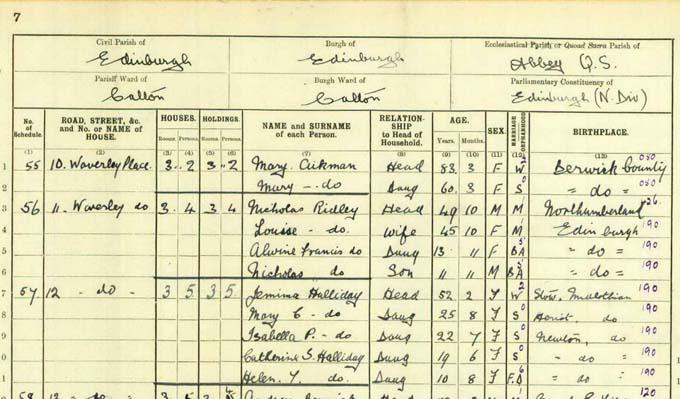 7
Civil Parish of
Edinburgh
Burgh of
Edinburgh
Ecclesiastical Parish or Quoad Sacra Parish of
Abbey Q.S.
Parish Ward of
Calton
Burgh Ward of
Calton
Parliamentary Constituency of
Edinburgh (N. Div)
No. of Schedule. ROAD, STREET, &c. and No. or NAME of HOUSE. HOUSES. HOLDINGS. NAME and SURNAME of each Person. RELATIONSHIP to Head of Household. AGE. SEX. MARRIAGE or ORPHANHOOD BIRTHPLACE.
Rooms Persons Rooms Persons Years. Months.
(1) (2) (3) (4) (5) (6) (7) (8) (9) (10) (11) (12) (13)
1 55 10. Waverley Place. 3 2 3 2 Mary Aikman Head 83 3 F W Berwick County 030
2 Mary - do Daug 60 8 F S " do " 030
3 56 11. Waverley do 3 4 3 4 Nicholas Ridley Head 49 10 M M Northumberland
4 Louise - do. Wife 45 10 F M Edinburgh 190
5 Alvine Francis do Daug 13 11 F " do " 190
6 Nicholas do Son 11 11 M " do " 190
7 57 12 - do - 3 5 3 5 Jemima Halliday Head 52 2 F W Midlothian 190
8 Mary C - do Daug 25 8 F S do 190
9 Isabella P. - do Daug 22 7 F S Newton, do 190
0 Catherine S. Halliday Daug 19 6 F S " do " 190
1 Helen. Y. do. Daug 10 8 F. do 190
58 120